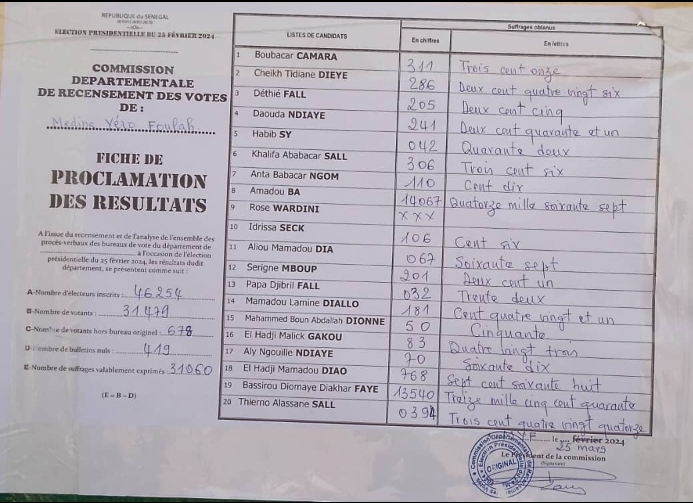 REPUBLIQUE du SENEGAL
ELECTION PRESIDENTIELLE DU 25 FÉVRIER 2024
COMMISSION
DEPARTEMENTALE
DE RECENSEMENT DES VOTES
DE :
Medina Yéro Foulah
FICHE DE
PROCLAMATION
DES RESULTATS
A l'issue du recensement et de l'analyse de l'ensemble des
procès-verbaux des bureaux de vote du département de
à l'occasion de l'élection
présidentielle du 25 février 2024, les résultats dudit
département, se présentent comme suit :
A-Nombre d'électeurs inscrits : 46254
B-Nombre de votants : 31479
C-Nombre de votants hors bureau originel : 678
D-Nombre de bulletins nuls : 419
E-Nombre de suffrages valablement exprimés : 31060
(E = B - D)
LISTES DE CANDIDATS
Suffrages obtenus
En chiffres
En lettres
1 Boubacar CAMARA 311 Trois cent onze
2 Cheikh Tidiane DIEYE 286 Deux cent quatre vingt six
3 Déthié FALL 205 Deux cent cinq
4 Daouda NDIAYE 241 Deux cent quarante et un
5 Habib SY 042 Quarante deux
6 Khalifa Ababacar SALL 306 Trois cent six
7 Anta Babacar NGOM 110 Cent dix
8 Amadou BA 14067 Quatorze mille soixante sept
9 Rose WARDINI XXX
10 Idrissa SECK 106 Cent six
11 Aliou Mamadou DIA 067 Soixante sept
12 Serigne MBOUP 201 Deux cent un
13 Papa Djibril FALL 032 Trente deux
14 Mamadou Lamine DIALLO 181 Cent quatre vingt et un
15 Mahammed Boun Abdallah DIONNE 50 Cinquante
16 El Hadji Malick GAKOU 83 Quatre vingt trois
17 Aly Ngouille NDIAYE 70 Soixante dix
18 El Hadji Mamadou DIAO 768 Sept cent soixante huit
19 Bassirou Diomaye Diakhar FAYE 13540 Treize mille cinq cent quarante
20 Thierno Alassane SALL 0394 Trois cent quatre vingt quatorze
MYF le février 2024
25 mars
Le Président de la commission
(Signature)
ORIGINAL